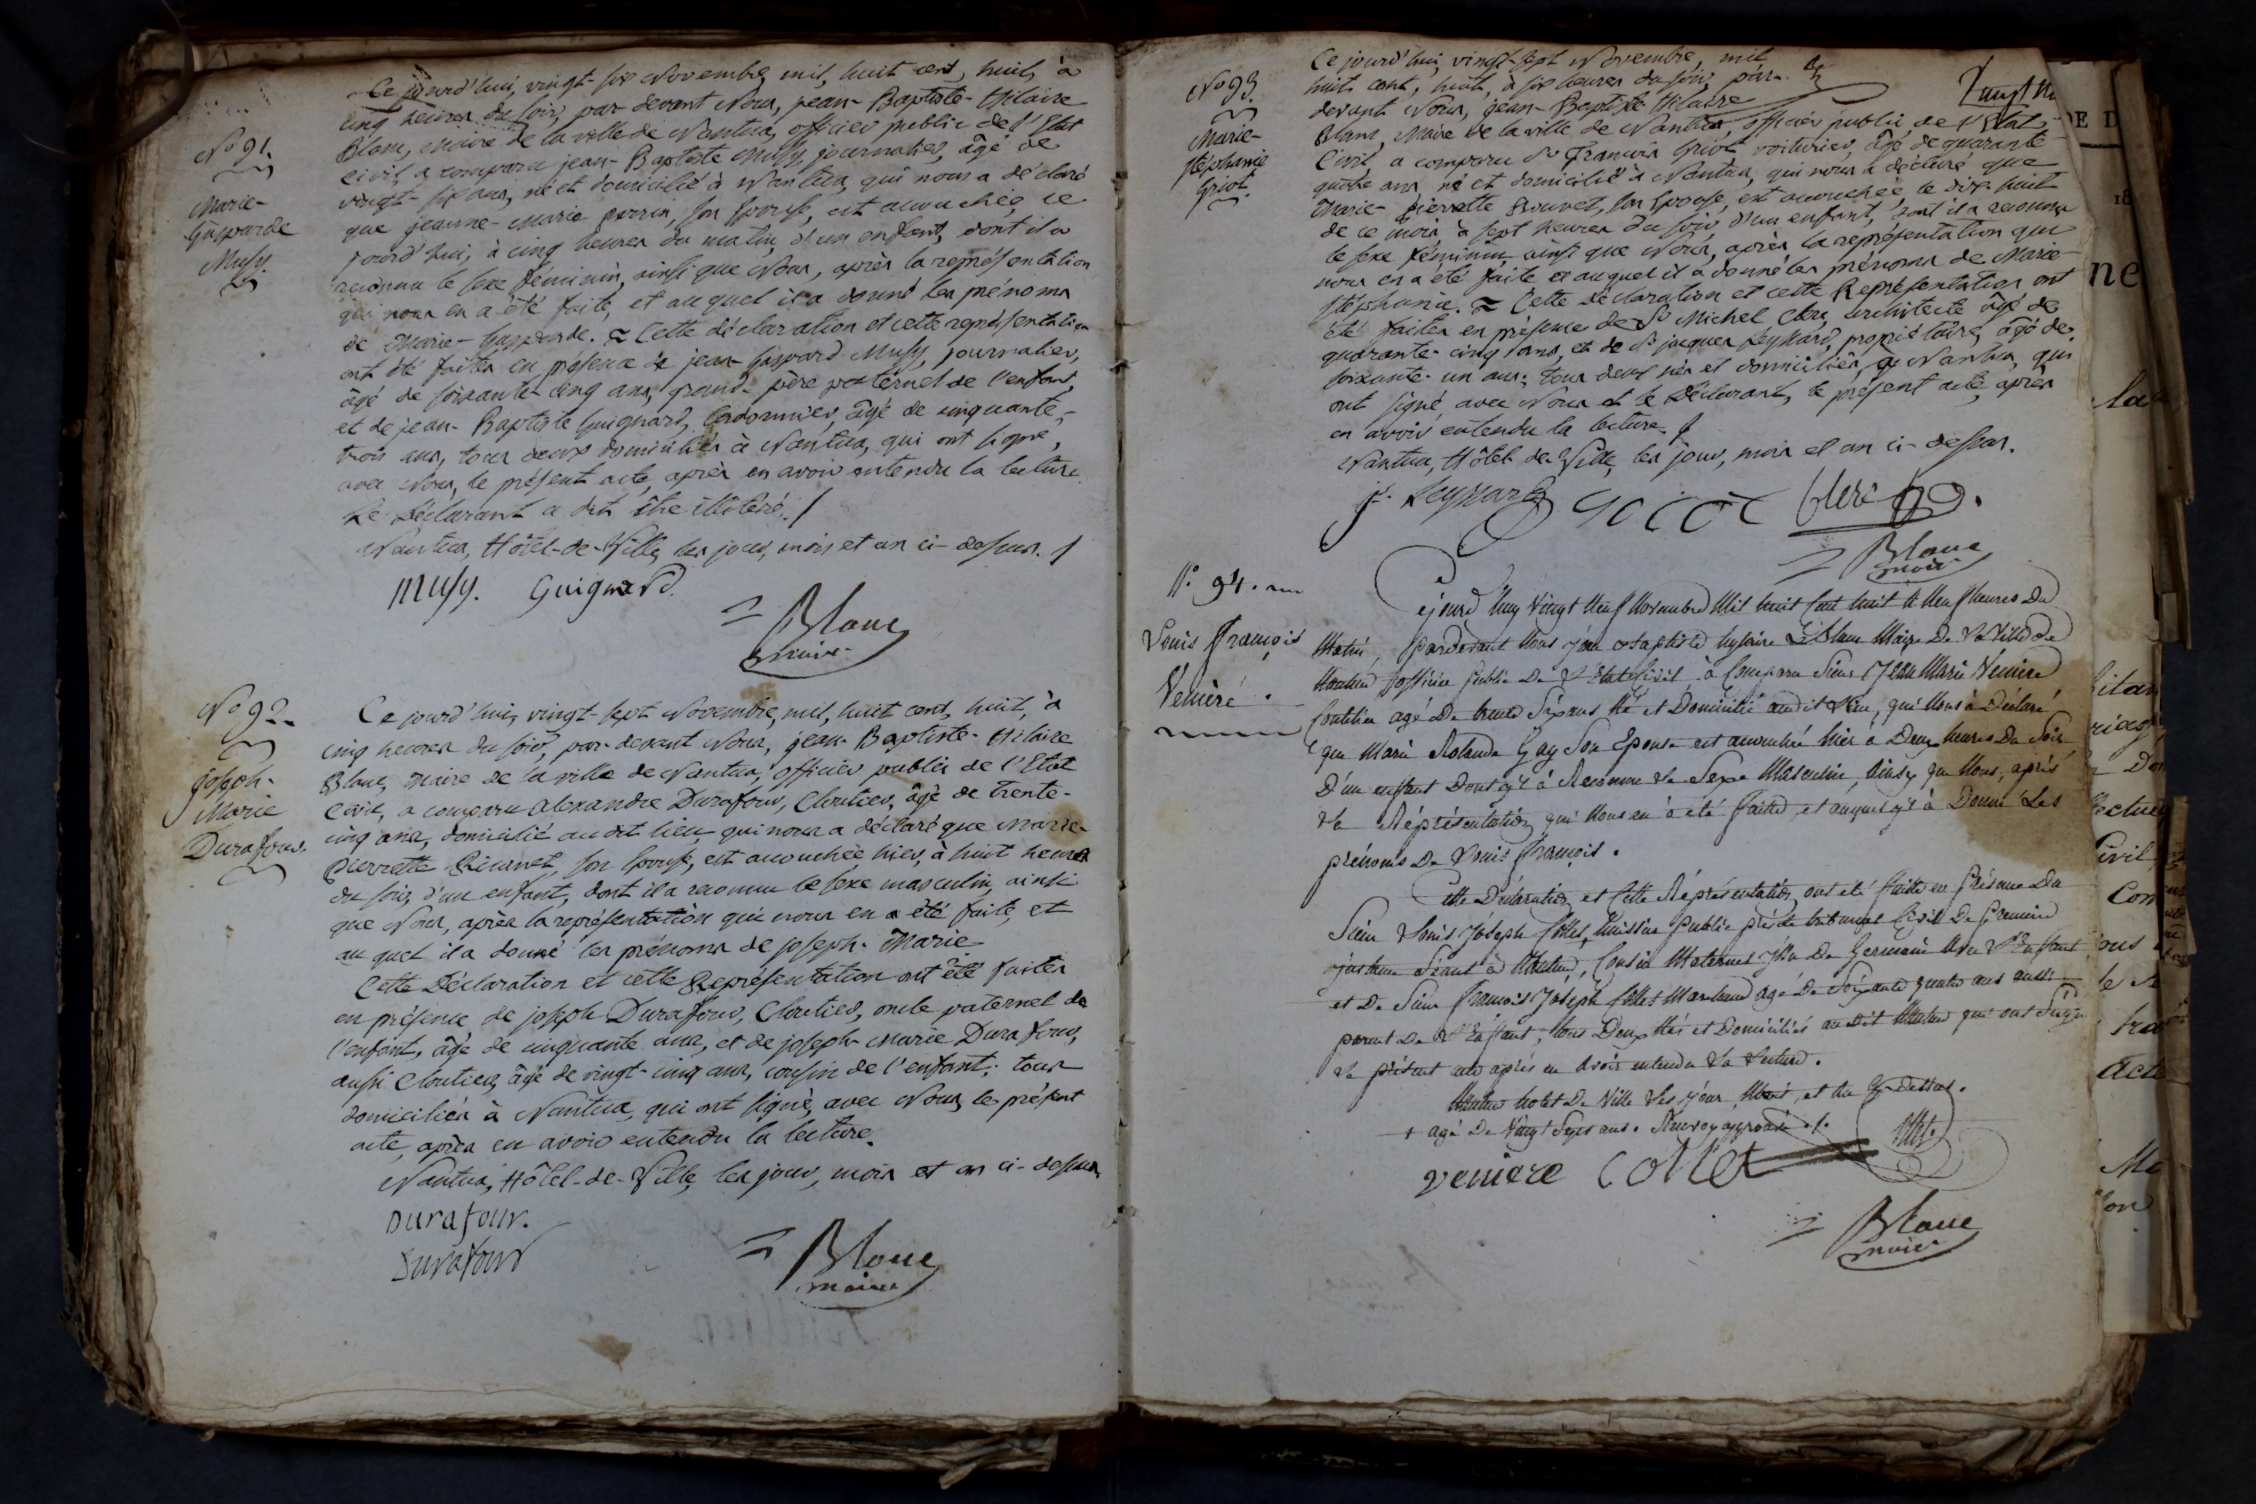 Ce jourd'hui, vingt-six Novembre, mil, huit cent, huit, à
cinq heures du soir, par-devant Nous, jean-Baptiste-Hilaire
Blanc, Maire de la ville de Nantua, officier public de l'Etat
Civil, a comparu jean-Baptiste Musy, journalier, âgé de
vingt-six ans, né et domicilié à Nantua, qui nous a déclaré
que jeanne-Marie perrin, son Epouse, est accouchée, ce
jourd'hui, à cinq heures du matin, d'un enfant, dont il a
reconnu le sexe féminin, ainsi que Nous, après la représentation
qui nous en a été faite, et au quel il a donné les prénoms
de Marie-Gasparde. Cette déclaration et cette représentation
ont été faites en présence de jean-Gaspard Musy, journalier,
âgé de soixante-cinq ans, grand-père paternel de l'enfant,
et de jean-Baptiste Guignard, Cordonnier, âgé de cinquante-
trois ans, tous deux domiciliés à Nantua, qui ont signé,
avec Nous, le présent acte, après en avoir entendu la lecture.
Le Déclarant a dit être illitéré.
Nantua, Hôtel-de-Ville, les jour, mois et an ci-dessus.
No 91.
Marie-
Gasparde
Musy.
Musy. Guignard.
Blanc
maire
No 92.
Joseph-
Marie
Durafour.
Ce jourd'hui, vingt-sept Novembre, mil, huit cent, huit, à
cinq heures du soir, par-devant Nous, jean-Baptiste-Hilaire
Blanc, Maire de la ville de Nantua, officier public de l'Etat
Civil, a comparu alexandre Durafour, Cloutier, âgé de trente-
cinq ans, domicilié au dit lieu, qui nous a déclaré que Marie-
Pierrette, son Epouse, est accouchée, hier, à huit heures
du soir, d'un enfant, dont il a reconnu le sexe masculin, ainsi
que Nous, après la représentation qui nous en a été faite, et
au quel il a donné les prénoms de joseph-Marie
Cette Déclaration et cette Représentation ont été faites
en présence de joseph Durafour, Cloutier, oncle paternel de
l'enfant, âgé de cinquante ans, et de joseph-Marie Durafour,
aussi Cloutier, âgé de vingt-cinq ans, cousin de l'enfant; tous
domiciliés à Nantua, qui ont signé, avec Nous, le présent
acte, après en avoir entendu la lecture.
Nantua, Hôtel-de-Ville, les jour, mois et an ci-dessus
Durafour.
Durafour
Blanc
maire
No 93.
Marie-
stéphanie
Grivot.
Ce jourd'hui, vingt-sept Novembre, mil
huit cent, huit, à six heures du soir, par-
devant Nous, jean-Baptiste Hilaire
Blanc, Maire de la ville de Nantua, officier public, de l'Etat
Civil, a comparu Sr François Grivot, voiturier, âgé de quarante-
quatre ans, né et domicilié à Nantua, qui nous a déclaré que
Marie-pierrette Bouvet, son Epouse, est accouchée, le dix-huit
de ce mois à sept heures du soir, d'un enfant, dont il a reconnu
le sexe féminin, ainsi que Nous, après la représentation qui
nous en a été faite et auquel il a donné les prénoms de Marie-
stéphanie. Cette déclaration et cette Représentation ont
été faites en présence de Sr Michel Clerc, architecte âgé de
quarante-cinq ans, et de Sr jacques Leyssard, propriétaire, âgé de
soixante-un ans; tous deux nés et domiciliés, à Nantua, qui
ont signé, avec Nous et le Déclarant, le présent acte, après
en avoir entendu la lecture.
Nantua, Hôtel de Ville, les jour, mois et an ci-dessus.
js. Leyssard Clerc
Blanc
maire
N° 94.
Louis François
Veniere.
Cejourd'huy Vingt Neuf Novembre Mil huit Cent huit à Neuf heures Du
Matin, Pardevant Nous jean Baptiste hylaire Blanc Maire De La Ville de
Nantua officier Public De L'Etat Civil à Comparu Sieur Jean Marie Veniere
agé De trente Six ans Né et Domicilié audit lieu, qui Nous à Déclaré
que Marie Rolande Gay Son Epouse est accouché hier à Deux heures Du Soir,
D'un enfant Dont y'l à Reconnu le Sexe Masculin, ainsy que Nous, après
La Réprésentation qui Nous en à été faitte, et auquel y'l à Donné Les
prénoms De Louis François.
Cette Déclaration et Cette Réprésentation ont été faitte en Présence Du
Sieur Louis Joseph Collet, huissier Public près le tribunal Civil De Premiere
jnstance Séant à Nantua, Cousin Maternel De Germain De L'Enfant
et De Sieur François Joseph Collet Marchand agé De Soixante quatre ans aussi
parent De L'Enfant, tous Deux Nés et Domiciliés audit Nantua qui ont Signé
le présent acte après en avoir entendu La Lecture.
Nantua hotel De Ville Les jour, Mois, et An Cy-dessus.
+ agé De Vingt Sept ans. Renvoy approuvé.
Veniere Collet
Blanc
maire